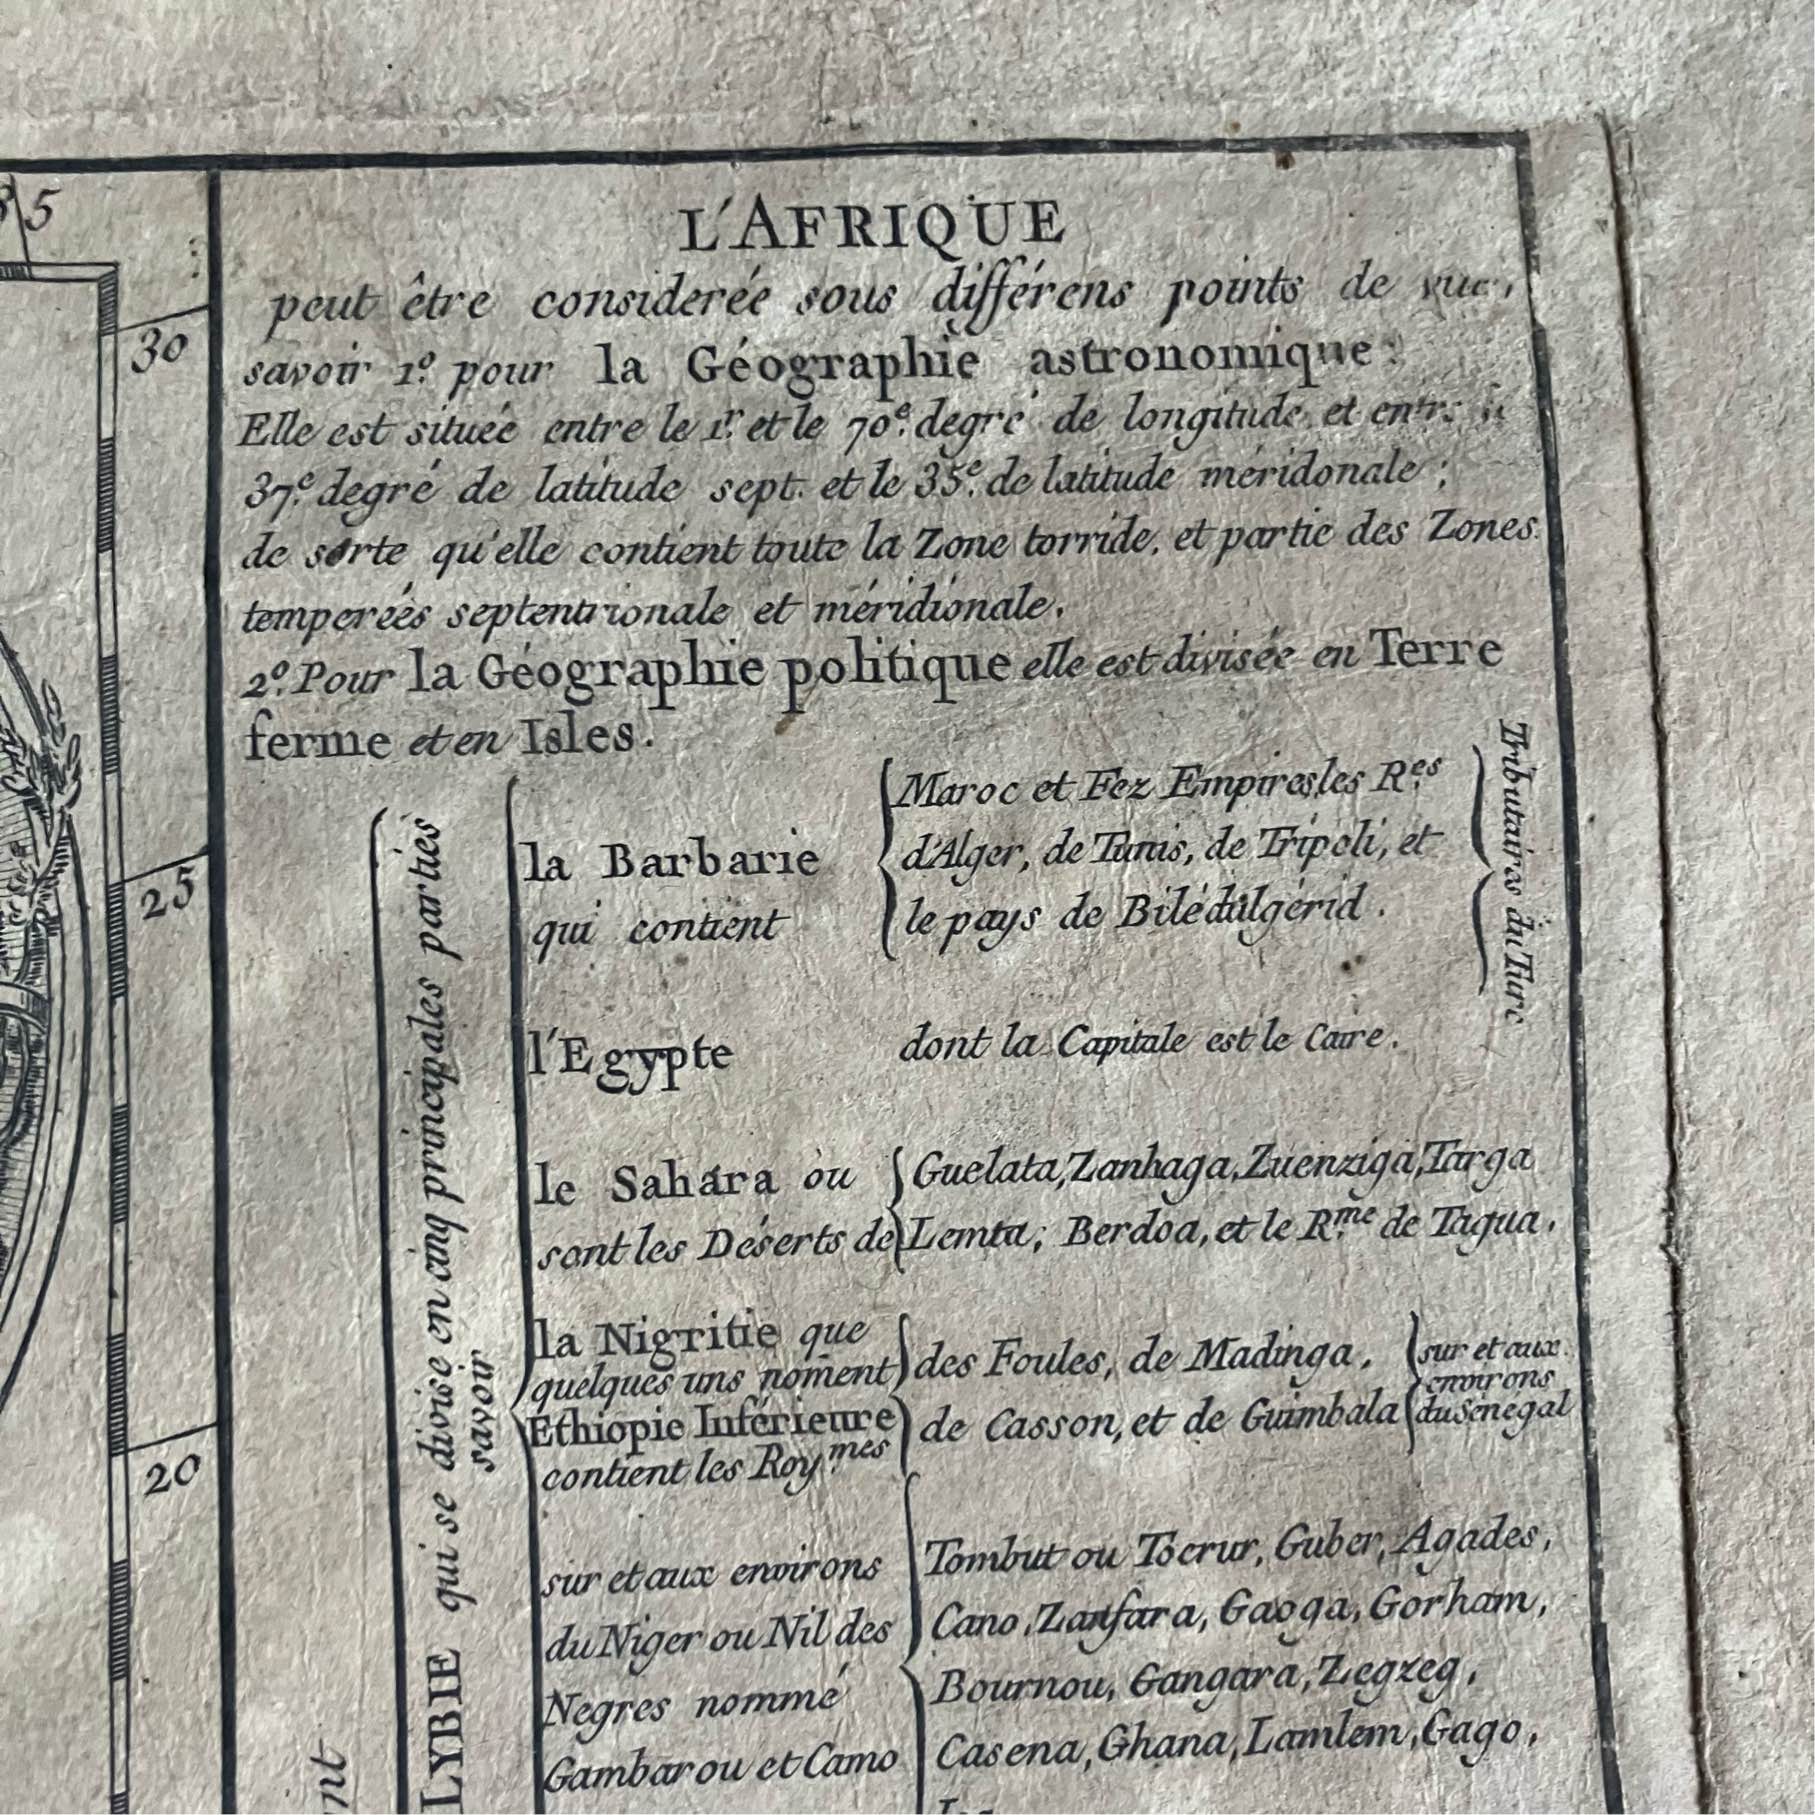 85
30
25
20
L'AFRIQUE
peut être considerée sous différens points de vue,
savoir 1.º pour la Géographie astronomique:
Elle est située entre le 1.r et le 70.e degré de longitude et entre
37.e degré de latitude sept. et le 35.e de latitude méridonale;
de sorte qu'elle contient toute la Zone torride, et partie des Zones
temperées septentrionale et méridionale.
2.º Pour la Géographie politique elle est divisée en Terre
ferme et en Isles.
LYBIE qui se divise en cinq principales parties
savoir
la Barbarie
qui contient
Maroc et Fez Empires, les R.es
d'Alger, de Tunis, de Tripoli, et
le pays de Bilédulgérid.
Tributaires du Turc
l'Egypte dont la Capitale est le Caire.
le Sahara ou
sont les Déserts de
Guelata, Zanhaga, Zuenziga, Targa
Lemta, Berdoa, et le R.me de Tagua.
la Nigritie que
quelques uns noment
Ethiopie Inférieure
contient les Roy.mes
des Foules, de Madinga,
de Casson, et de Guimbala
sur et aux
environs
du Sénegal
sur et aux environs
du Niger ou Nil des
Negres nommé
Gambarou et Camo
Tombut ou Tocrur, Guber, Agades,
Cano, Zanfara, Gaoga, Gorham,
Bournou, Gangara, Zegzeg,
Casena, Ghana, Lamlem, Gago,